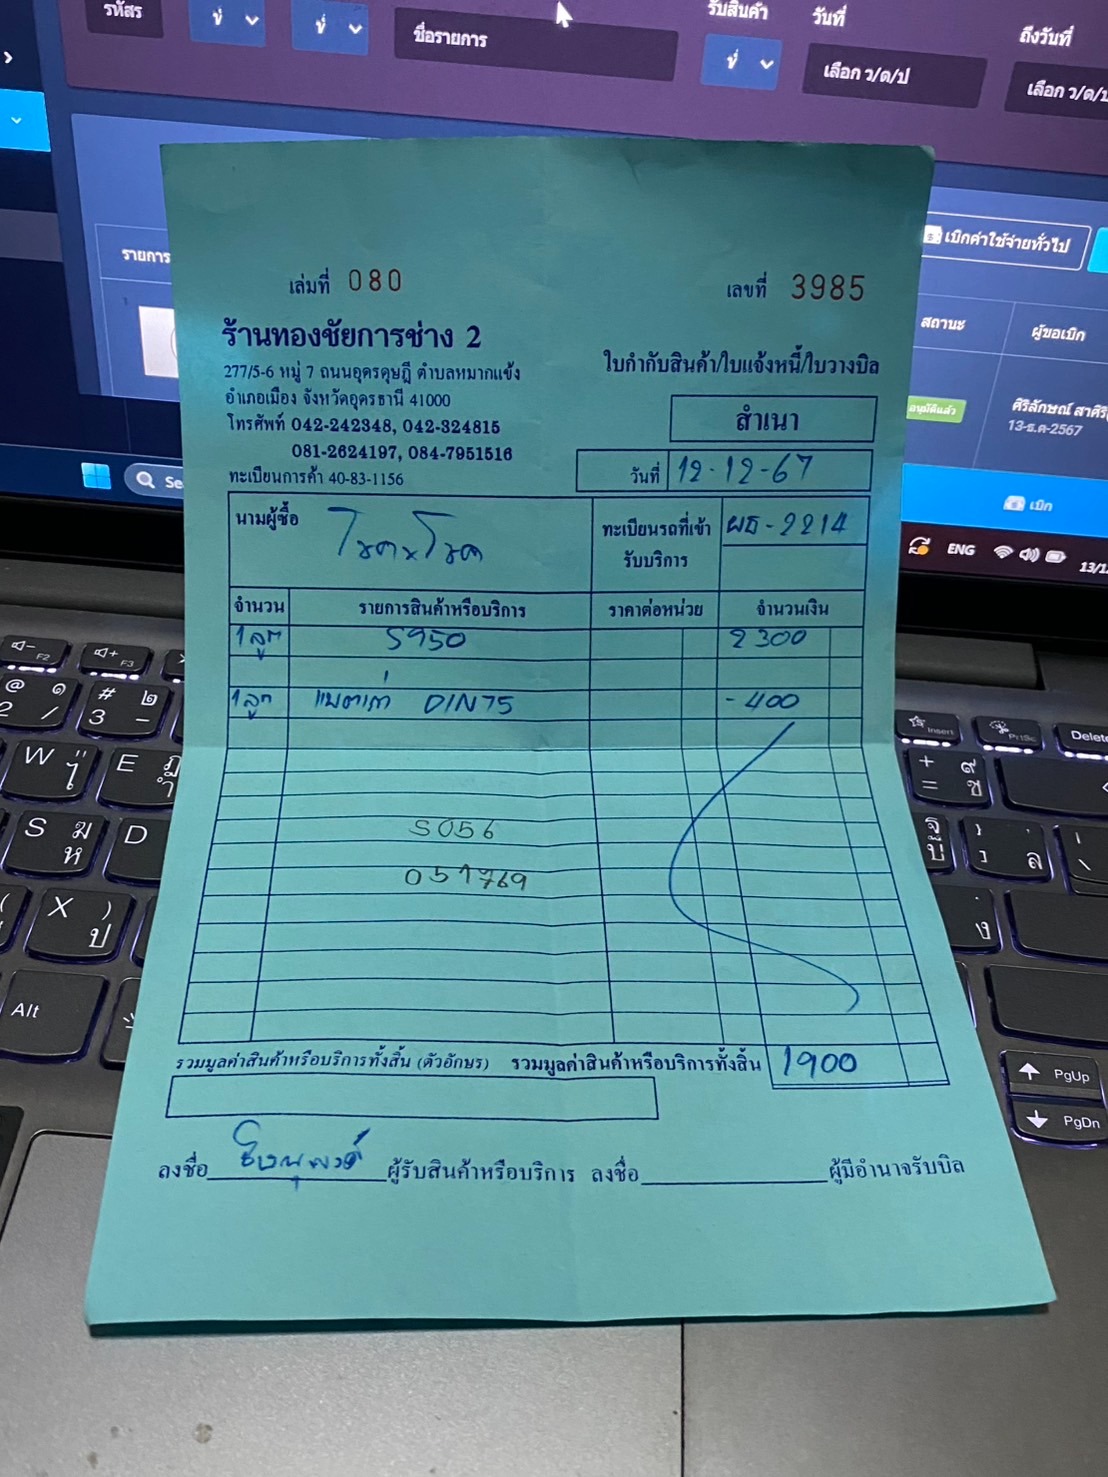 รหัสร
ชื่อรายการ
รับสินค้า
วันที่
เลือก ว/ด/ป
ถึงวันที่
เลือก ว/ด/ป
รายการ
เบิกค่าใช้จ่ายทั่วไป
สถานะ
ผู้ขอเบิก
อนุมัติแล้ว
ศิริลักษณ์ สาศิริ
13-ธ.ค-2567
เบิก
Se
ENG
13/1
เล่มที่ 080
เลขที่ 3985
ร้านทองชัยการช่าง 2
277/5-6 หมู่ 7 ถนนอุดรดุษฎี ตำบลหมากแข้ง
อำเภอเมือง จังหวัดอุดรธานี 41000
โทรศัพท์ 042-242348, 042-324815
081-2624197, 084-7951516
ทะเบียนการค้า 40-83-1156
ใบกำกับสินค้า/ใบแจ้งหนี้/ใบวางบิล
สำเนา
วันที่ 12-12-67
นามผู้ซื้อ
ทะเบียนรถที่เข้ารับบริการ ผธ-2214
จำนวน รายการสินค้าหรือบริการ ราคาต่อหน่วย จำนวนเงิน
1 ลูก S950 2300
1 ลูก แบตเก่า DIN75 -400
S056
051769
รวมมูลค่าสินค้าหรือบริการทั้งสิ้น (ตัวอักษร) รวมมูลค่าสินค้าหรือบริการทั้งสิ้น 1900
ลงชื่อ ผู้รับสินค้าหรือบริการ ลงชื่อ ผู้มีอำนาจรับบิล
F2
F3
Insert
PrtSc
Delete
W
E
S
D
X
Alt
PgUp
PgDn